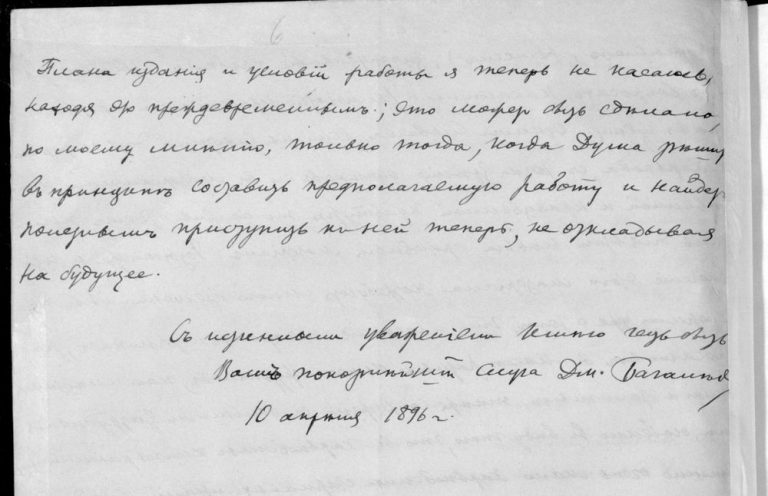 6
Плана изданія и условій работы я теперь не касаюсь,
находя это преждевременнымъ; это может быть сдѣлано,
по моему мнѣнію, только тогда, когда Дума рѣшит
въ принципѣ составить предполагаемую работу и найдет
полезнымъ приступить къ ней теперь, не откладывая
на будущее.
Съ искреннимъ уваженіемъ имѣю честь быть
Вашъ покорнѣйшій слуга Дм. Багалѣй
10 апрѣля 1896 г.